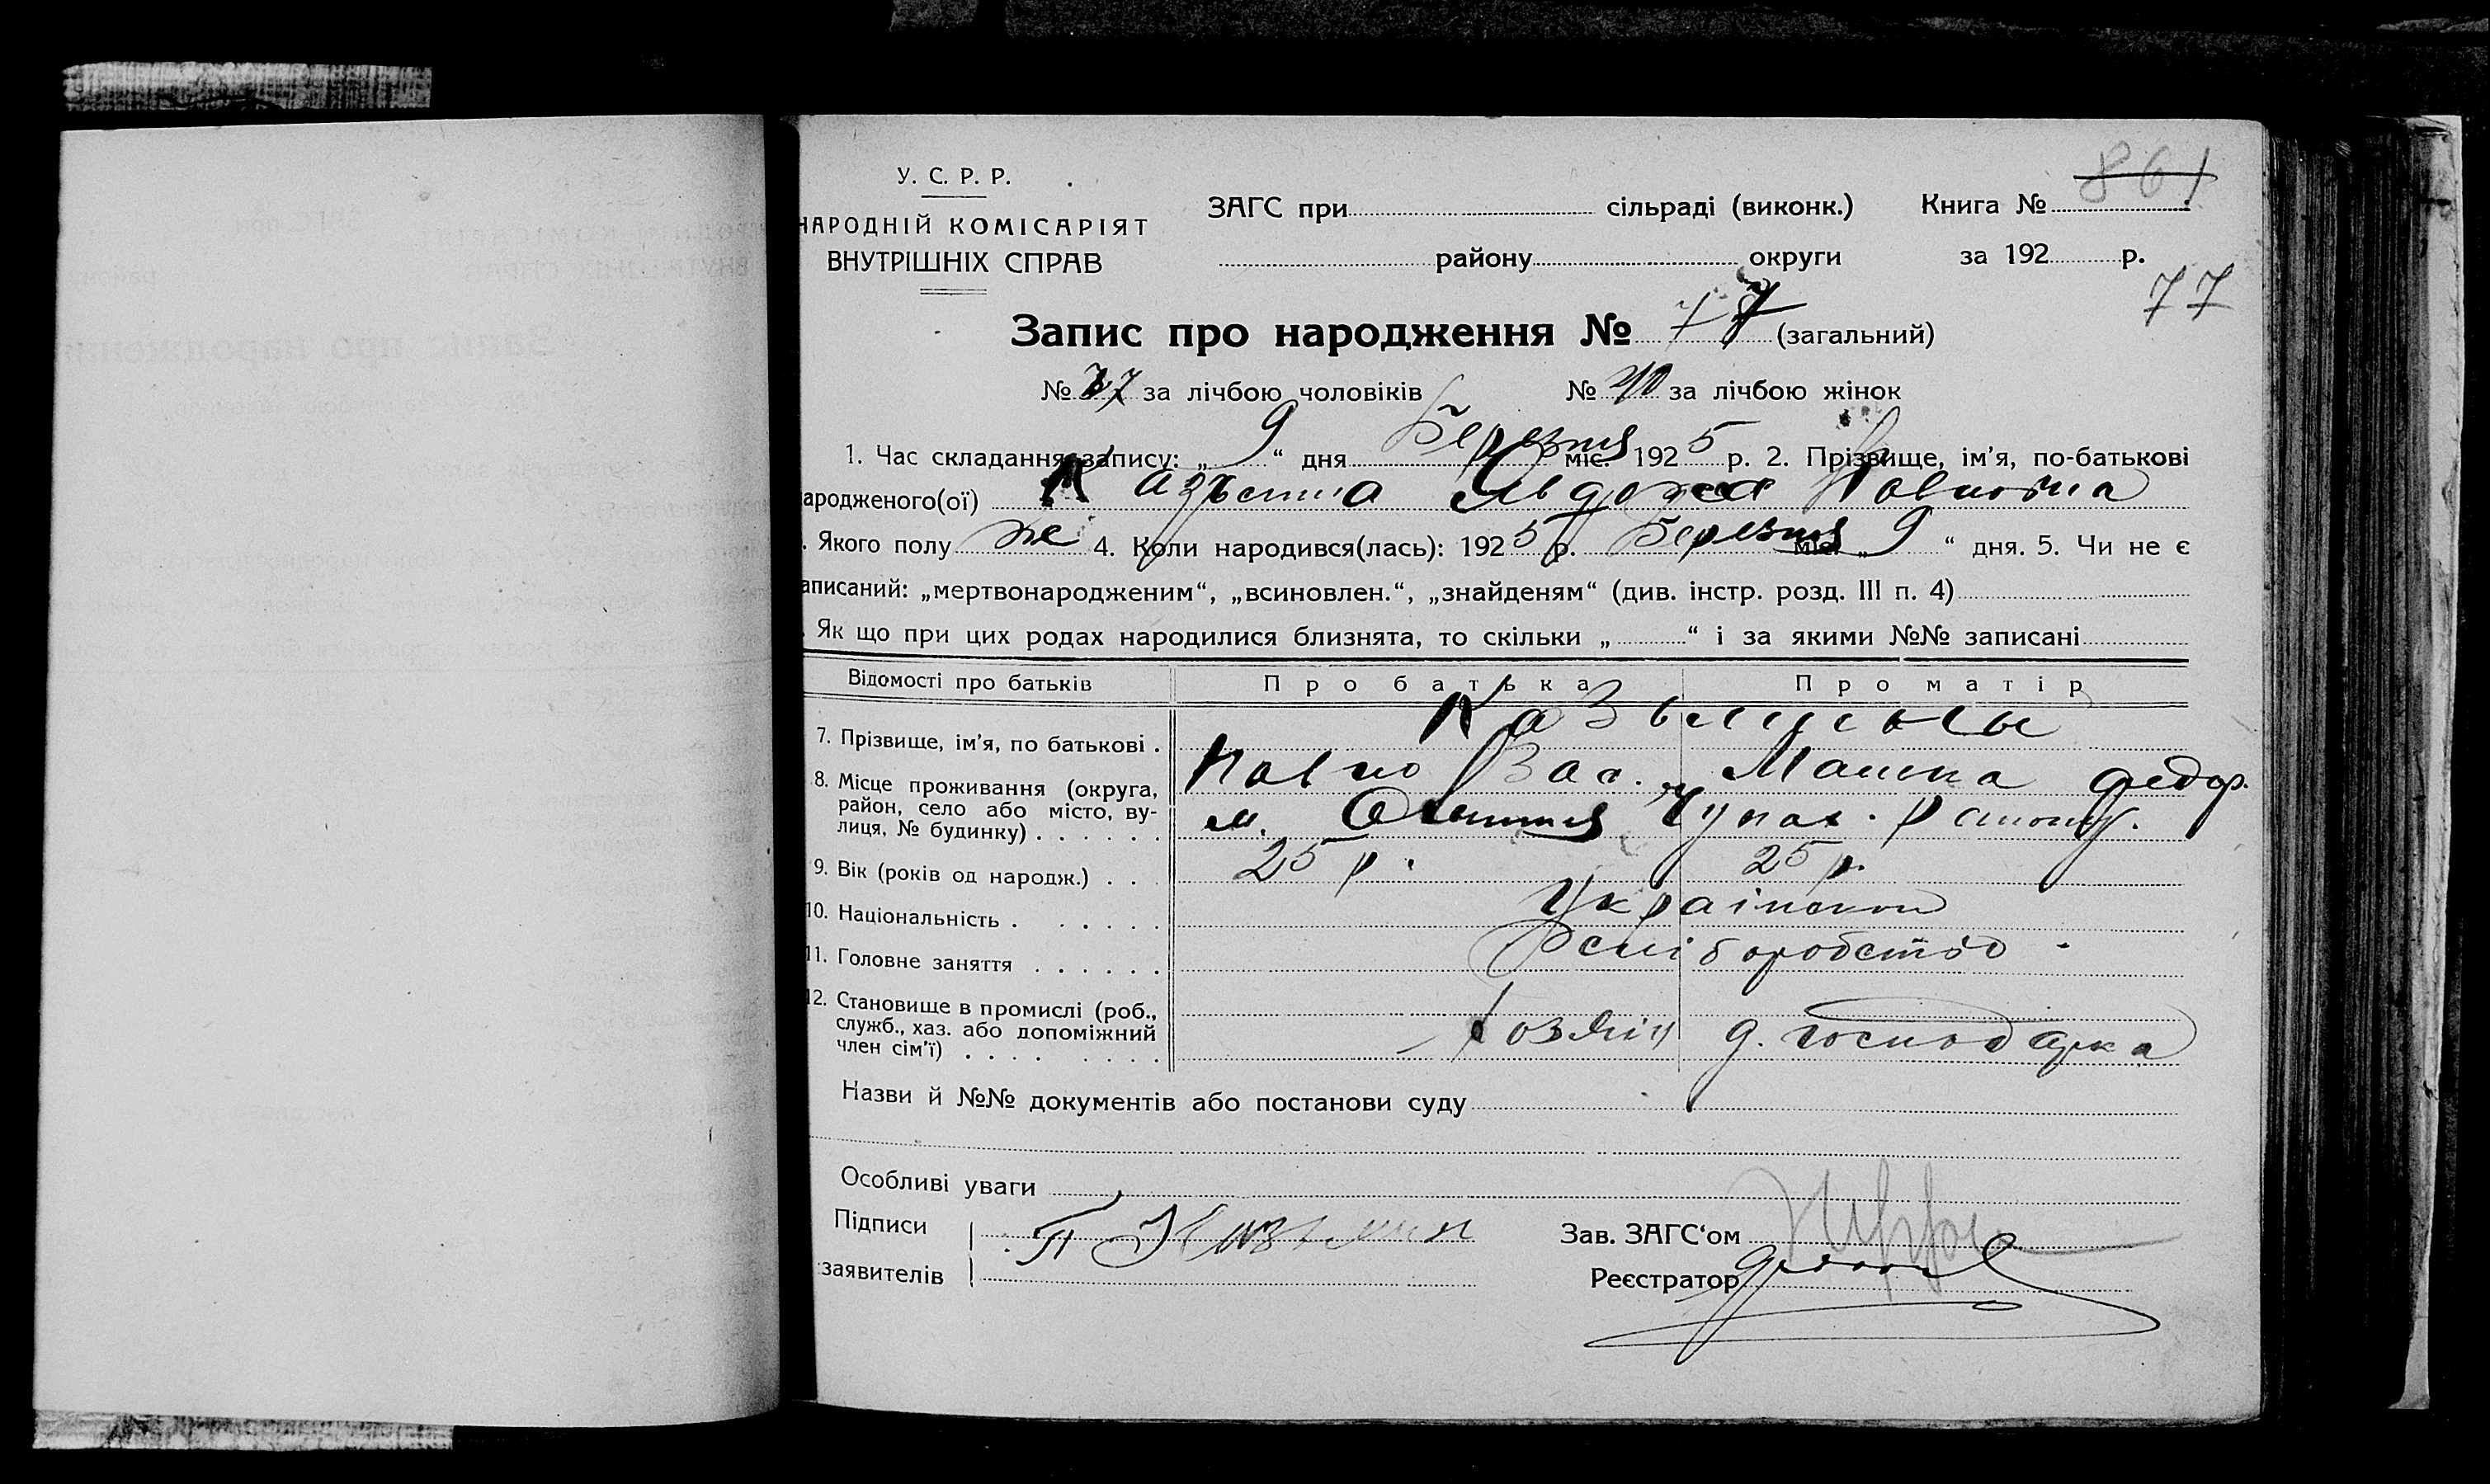 861
У. С. Р. Р.
НАРОДНІЙ КОМІСАРІЯТ
ВНУТРІШНІХ СПРАВ
ЗАГС при сільраді (виконк.) Книга №
району округи за 192 р.
77
Запис про народження № 77 (загальний)
№ 37 за лічбою чоловіків № 40 за лічбою жінок
1. Час складання запису: „ 9 “ дня Березня міс. 1925 р. 2. Прізвище, ім'я, по-батькові
ародженого(ої) Явдоха Павловна
. Якого полу же 4. Коли народився(лась): 1925 р. Березня міс. „ 9 “ дня. 5. Чи не є
аписаний: „мертвонародженим“, „всиновлен.“, „знайденям“ (див. інстр. розд. III п. 4)
. Як що при цих родах народилися близнята, то скільки „ “ і за якими №№ записані
Відомості про батьків Про батька Про матір
7. Прізвище, ім'я, по батькові .
Павло Вас. Федор.
8. Місце проживання (округа, район, село або місто, ву-
лиця, № будинку) . . . . . . м. Чупах. району.
9. Вік (років од народж.) . . . 25 р. 25 р.
10. Національність . . . . . .
11. Головне заняття . . . . . .
12. Становище в промислі (роб.,
служб., хаз. або допоміжний
член сім'ї) . . . . . . . . Хозяїн д. господарка
Назви й №№ документів або постанови суду
Особливі уваги
Підписи П Зав. ЗАГС'ом
заявителів Реєстратор